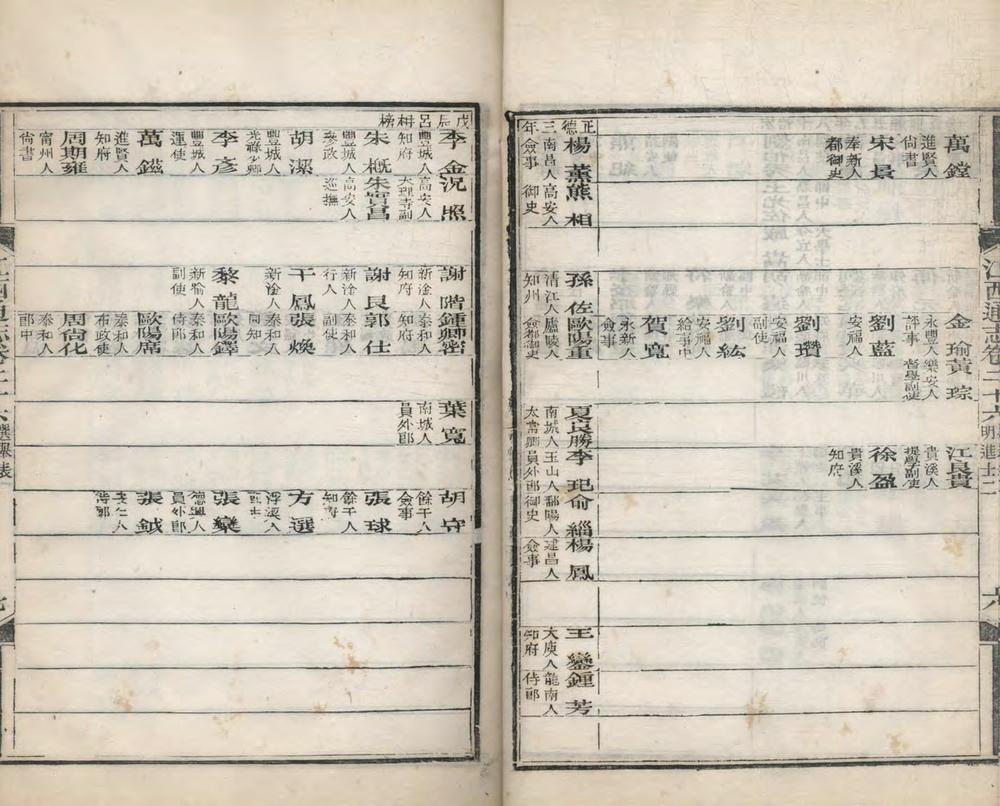 江西通志卷二十六
明進士二
六
萬鏜
進賢人
尚書
金瑜
永豐人
評事
黃琮
樂安人
督學副使
江良貴
貴溪人
提學副使
宋景
奉新人
都御史
劉藍
安福人
徐盈
貴溪人
知府
劉瓚
安福人
副使
劉紘
安福人
給事中
賀寬
永新人
僉事
正德三年
楊薰
南昌人
僉事
熊相
高安人
御史
孫佐
清江人
知州
歐陽重
廬陵人
僉都御史
夏良勝
南城人
太常卿
李玘
玉山人
員外郎
俞緇
鄱陽人
御史
楊鳳
建昌人
僉事
王鑾
大庾人
知府
鍾芳
龍南人
侍郎
戊辰呂柟榜
李金
豐城人
知府
況照
高安人
大理寺副
謝階
新淦人
知府
鍾卿密
泰和人
知府
葉寬
南城人
員外郎
胡守
餘干人
僉事
朱概
豐城人
參政
朱實昌
高安人
巡撫
謝良
新淦人
行人
郭仕
泰和人
副使
張球
餘干人
胡潔
豐城人
光祿少卿
干鳳
新淦人
張煥
泰和人
同知
方選
浮梁人
李彥
豐城人
運使
黎龍
新喻人
副使
歐陽鐸
泰和人
侍郎
張欒
德興人
員外郎
萬鎡
進賢人
知府
歐陽席
泰和人
布政使
張鉞
周期雍
甯州人
尚書
周尚化
泰和人
郎中
選舉表
七